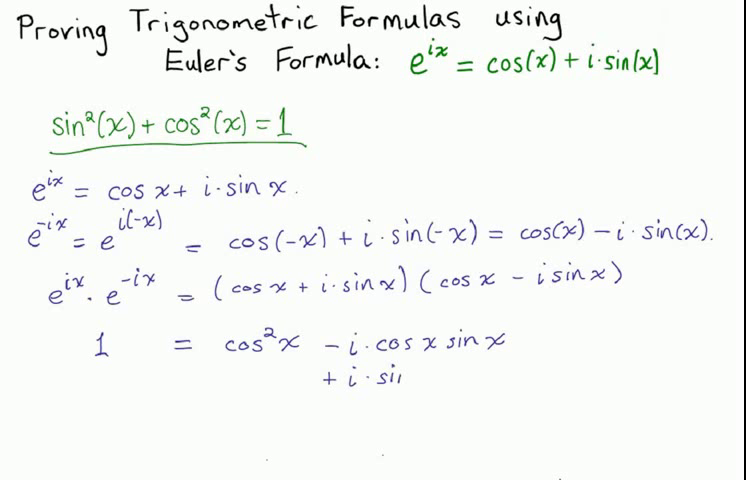 Proving Trigonometric Formulas using
Euler's Formula: e^{ix} = cos(x) + i·sin(x)
sin²(x) + cos²(x) = 1
e^{ix} = cos x + i·sin x.
e^{-ix} = e^{i(-x)} = cos(-x) + i·sin(-x) = cos(x) - i·sin(x).
e^{ix}·e^{-ix} = (cos x + i·sin x)(cos x - i sin x)
1 = cos²x - i·cos x sin x
+ i·sii